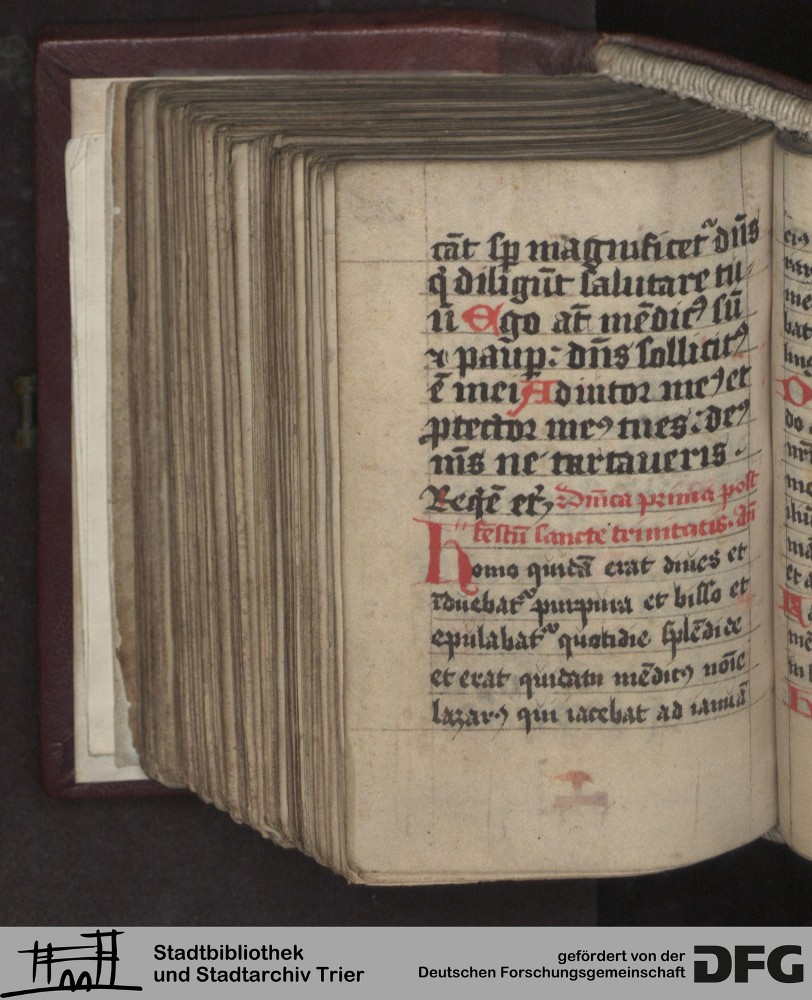 cāt sp̱ magnificet᷑ dn̄s
q̇ diligūt salutare tu
ū Ego at̄ mēdicꝰ sū
⁊ paup̱: dn̄s sollicitꝰ
ē mei Adiutor meꝰ et
ꝓtector meꝰ tu es: deꝰ
m̄s ne tartaueris .
Reqē et̄ꝫ Dn̄ica prima post
festū sancte trinitatis. An̄
homo quidā erat diues et
īduebat᷑ purpura et bisso et
epulabat᷑ quotidie splēdice
et erat quidam mēdicꝰ noīe
lazarꝰ qui iacebat ad ianuā
Stadtbibliothek
und Stadtarchiv Trier
gefördert von der
Deutschen Forschungsgemeinschaft
DFG